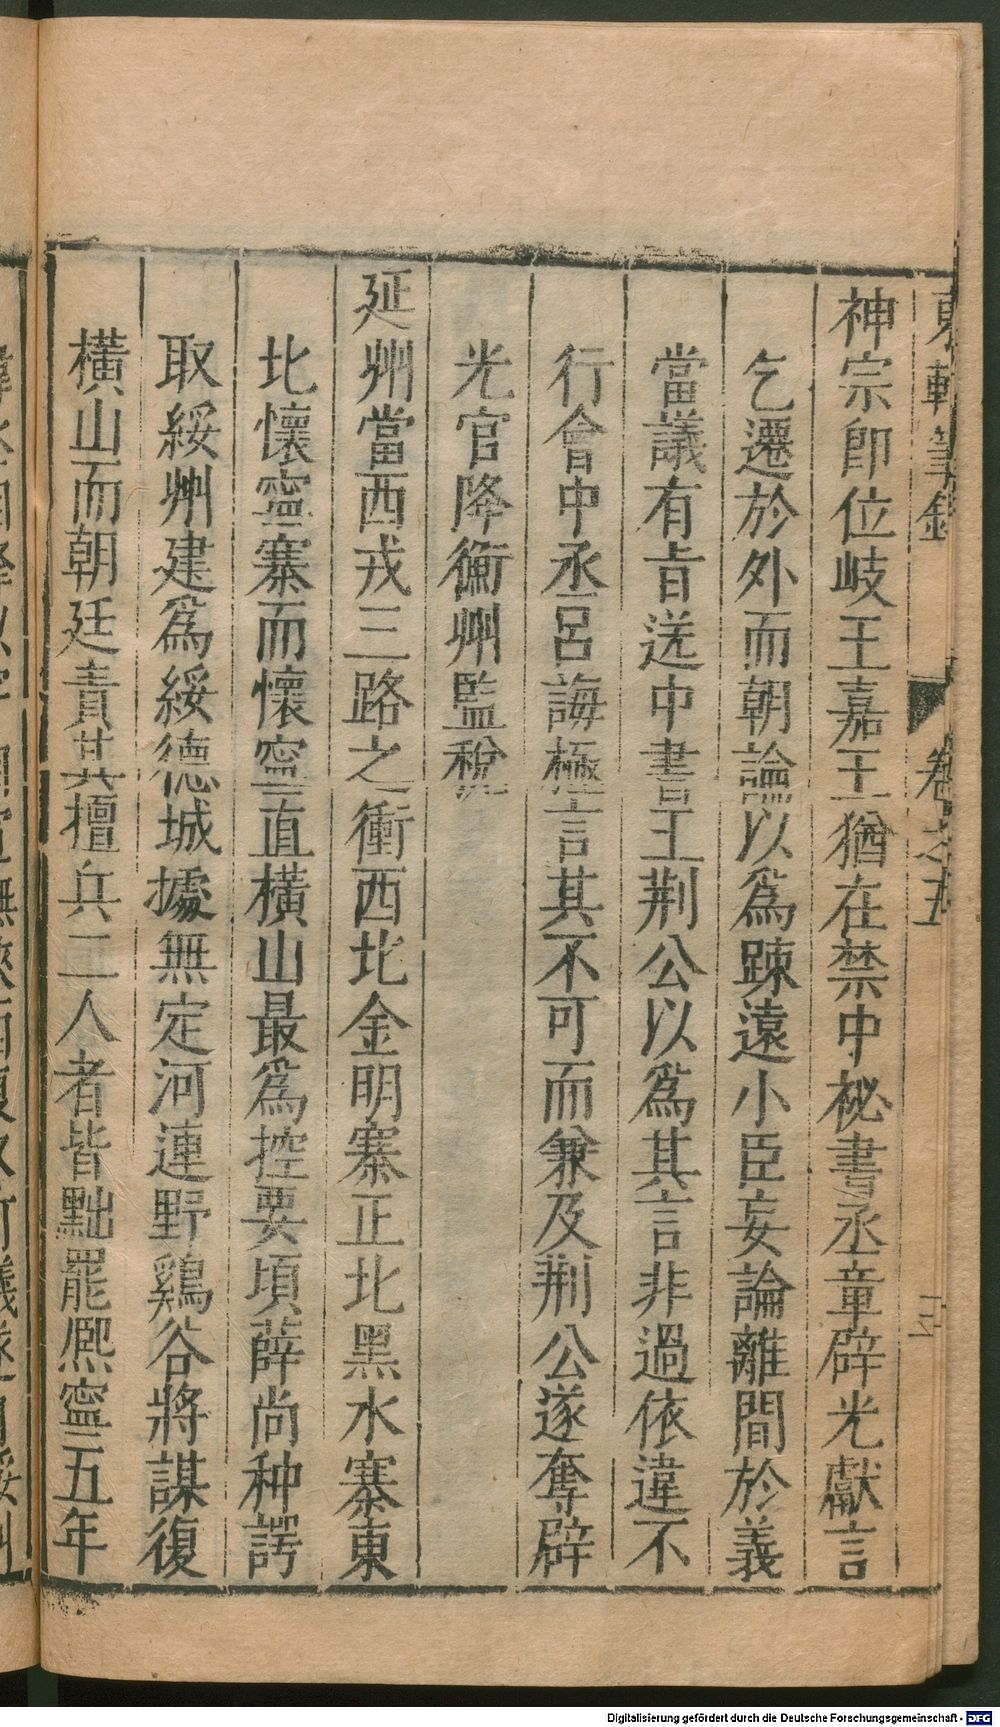 東軒筆錄 卷之五
神宗即位岐王嘉王猶在禁中秘書丞章辟光獻言
乞遷於外而朝論以爲踈遠小臣妄論離間於義
當議有旨送中書王荆公以爲其言非過依違不
行會中丞呂誨極言其不可而兼及荆公遂奪辟
光官降衡州監稅
延州當西戎三路之衝西北金明寨正北黑水寨東
北懷寧寨而懷寧直橫山最爲控要頃薛尚种諤
取綏州建爲綏德城據無定河連野鷄谷將謀復
橫山而朝廷責其擅兵二人者皆黜罷熈寧五年
Digitalisierung gefördert durch die Deutsche Forschungsgemeinschaft - DFG